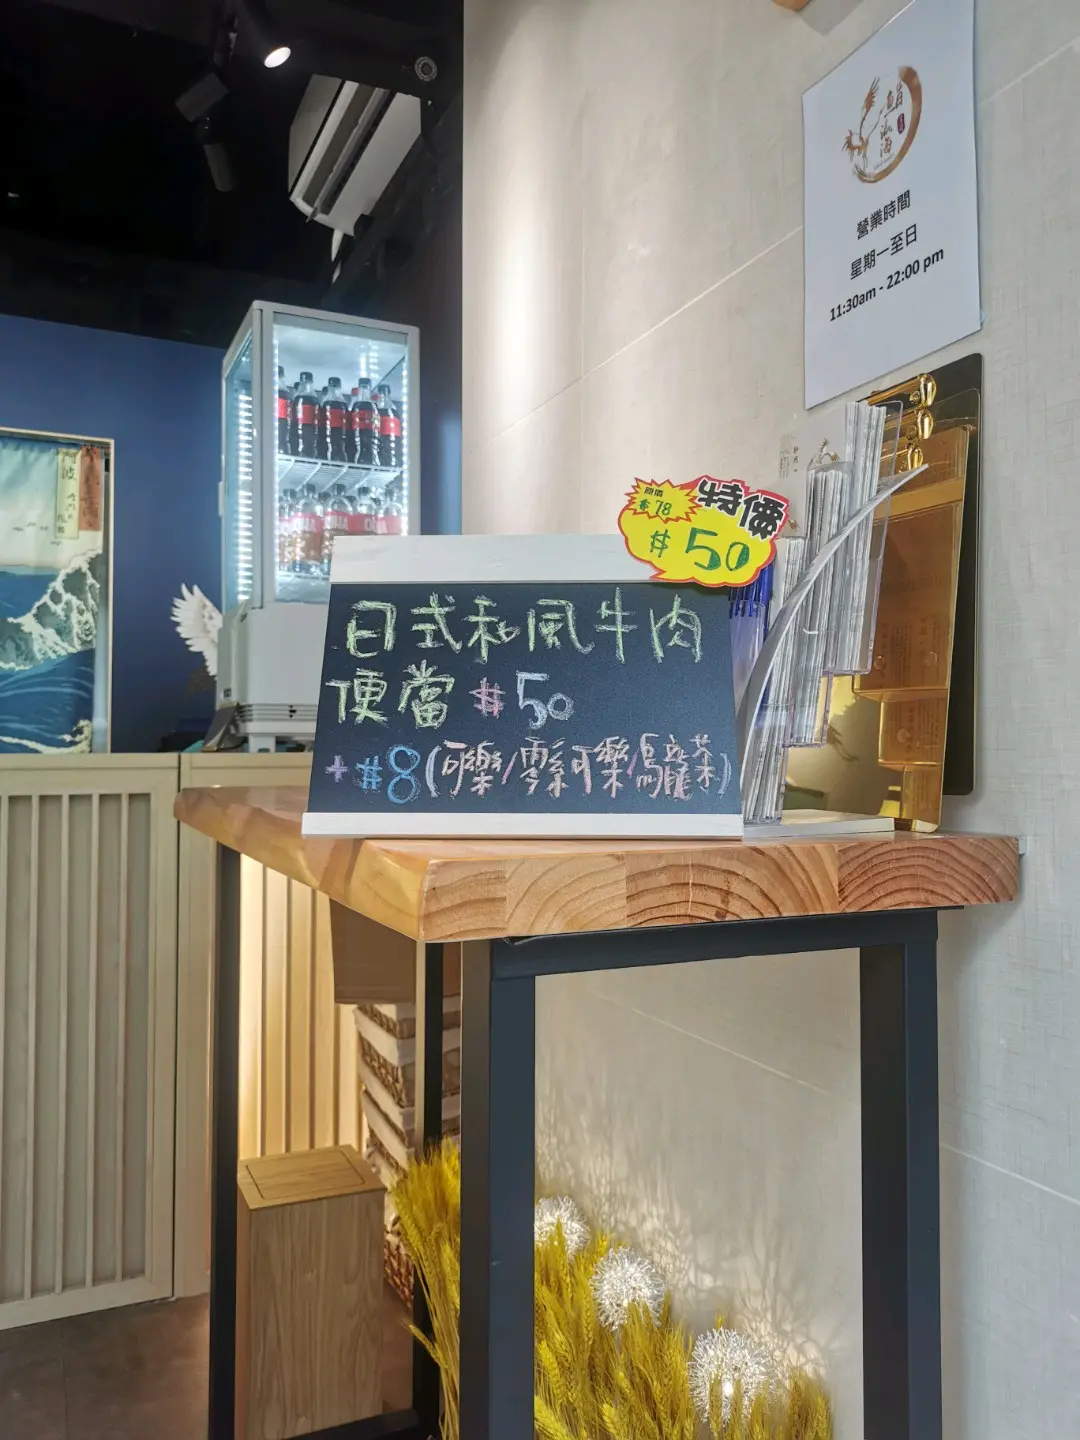 營業時間
星期一至日
11:30am - 22:00 pm
原價
$78
特價
$50
日式和風牛肉
便當 $50
+$8(可樂/零系可樂/烏龍茶)